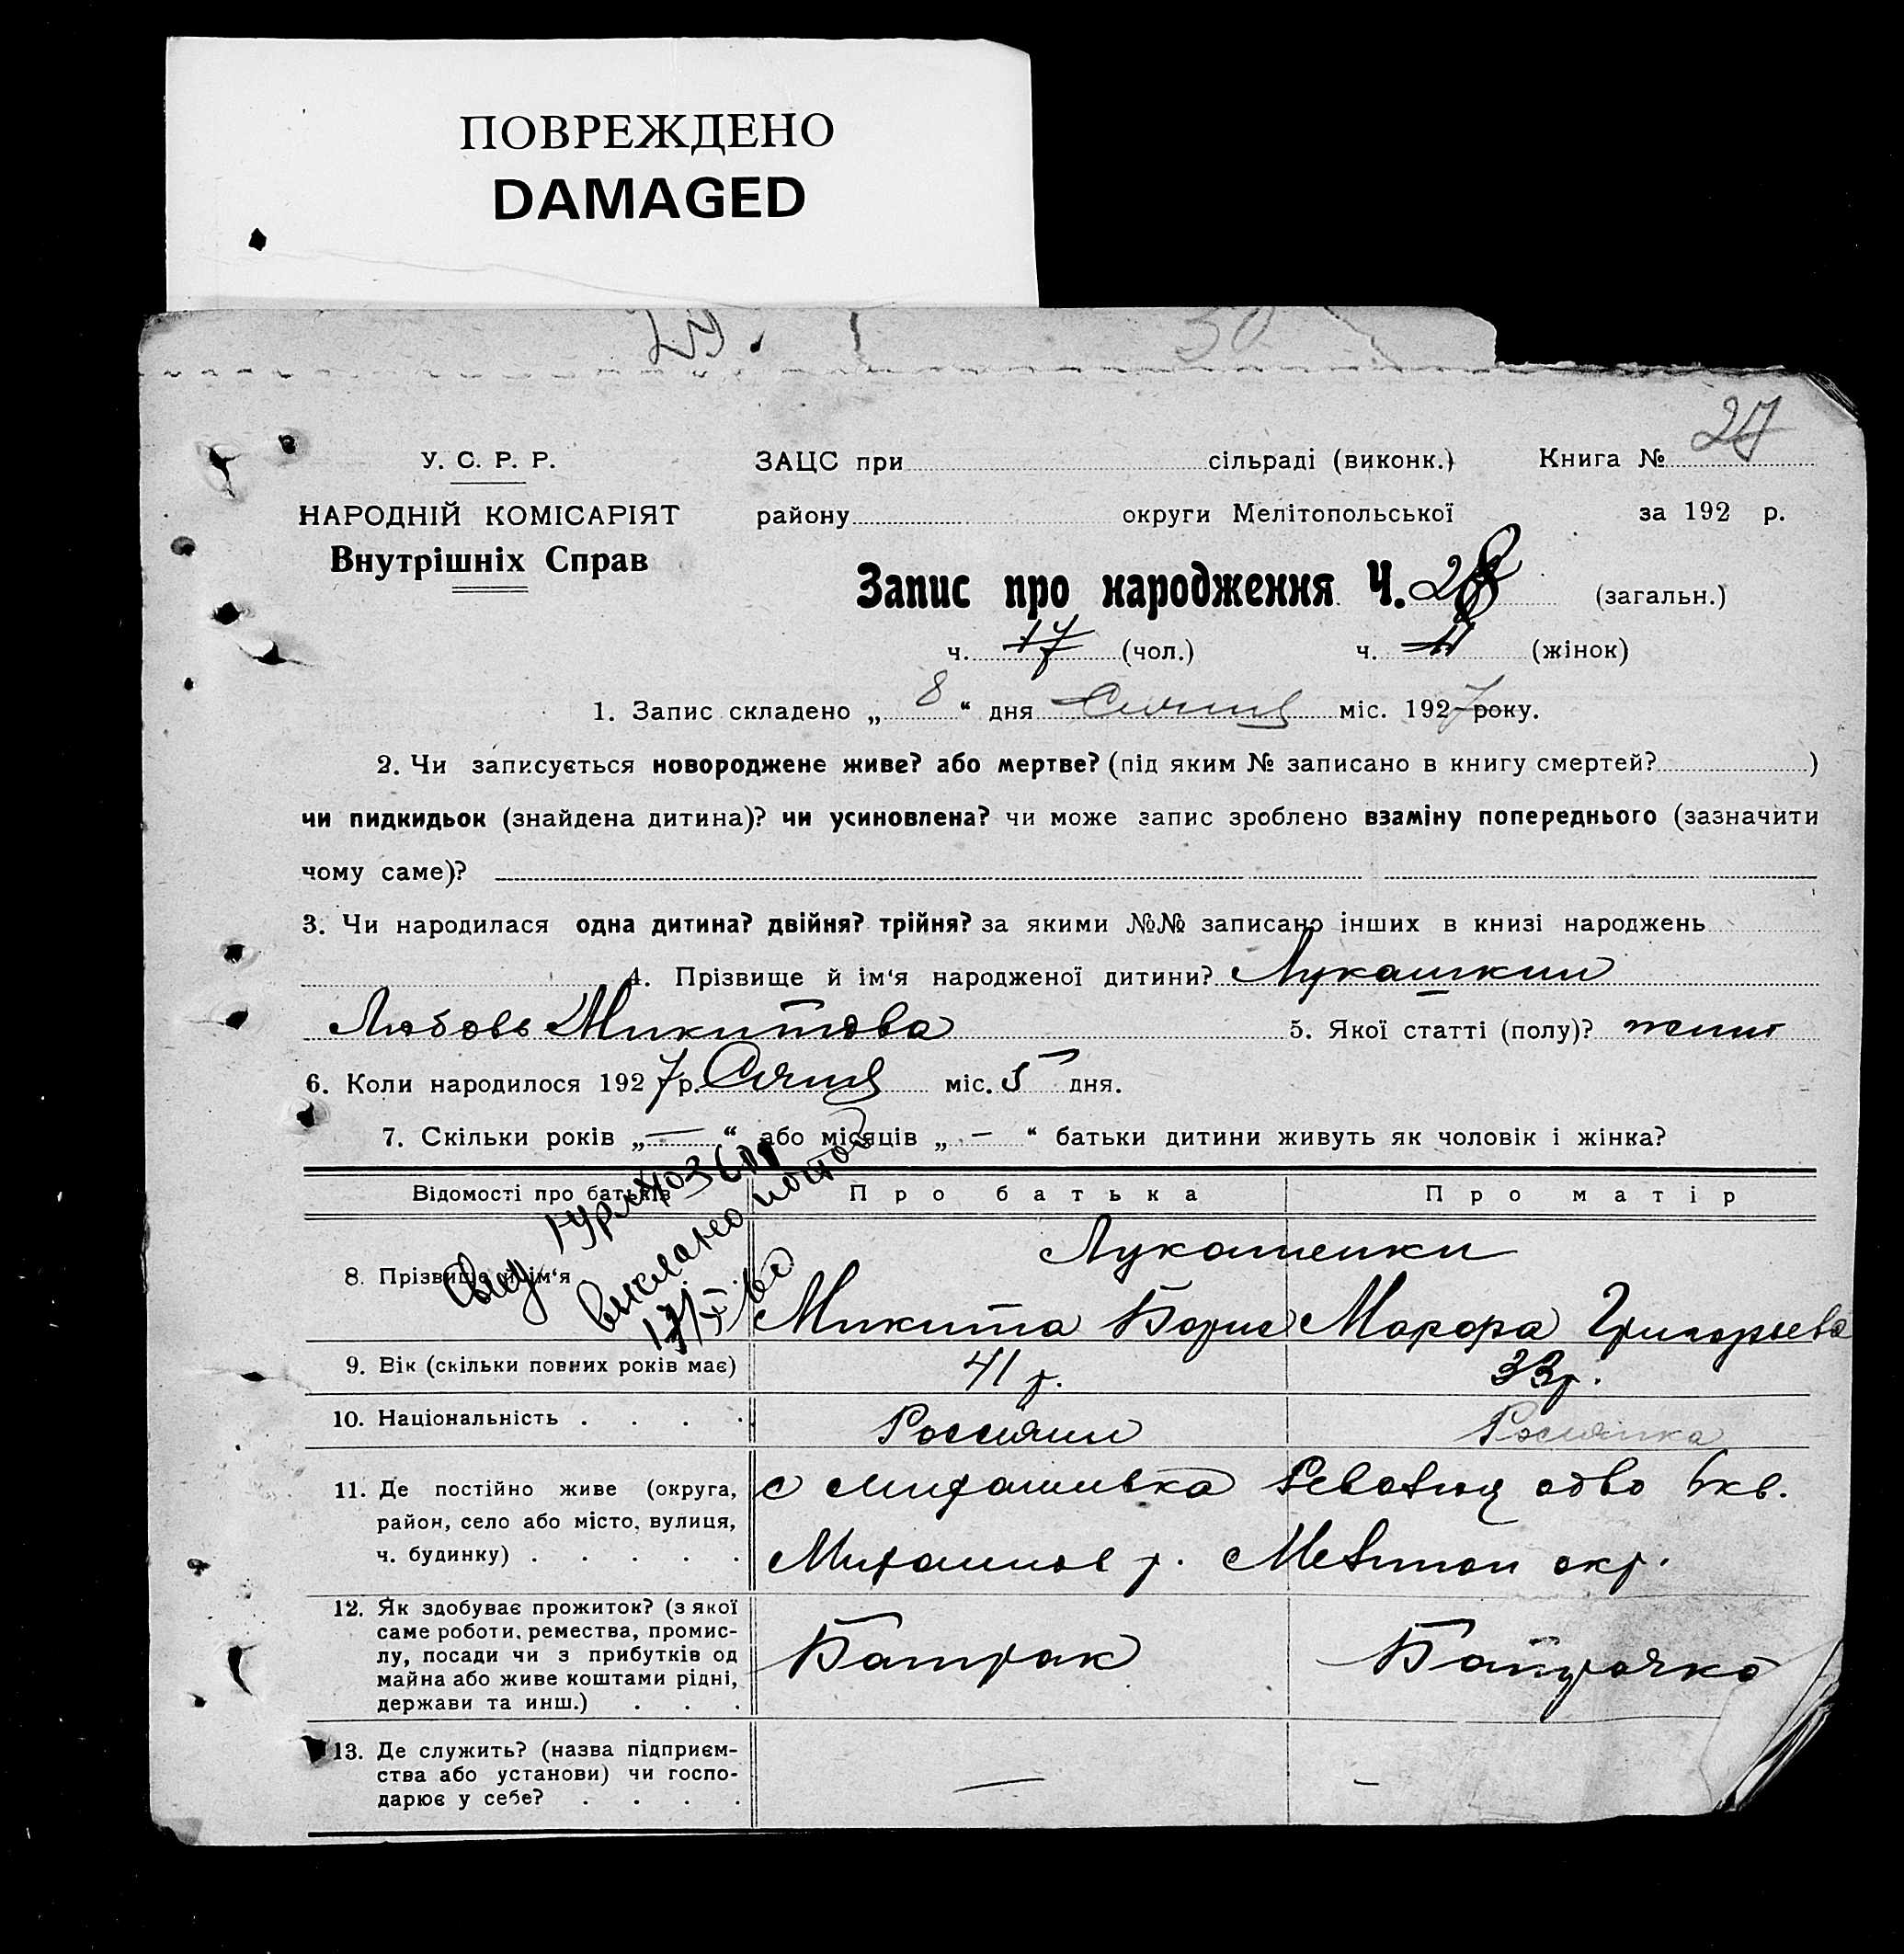 ПОВРЕЖДЕНО
DAMAGED
50
27
У. С. Р. Р.
ЗАЦС при сільраді (виконк.) Книга №
НАРОДНІЙ КОМІСАРІЯТ
району округи Мелітопольської за 192 р.
Внутрішніх Справ
Запис про народження Ч. 28 (загальн.)
ч. 17 (чол.) ч. (жінок)
1. Запис складено „ 8 “ дня Січня міс. 1927 року.
2. Чи записується новороджене живе? або мертве? (під яким № записано в книгу смертей? )
чи пидкидьок (знайдена дитина)? чи усиновлена? чи може запис зроблено взаміну попереднього (зазначити
чому саме)?
3. Чи народилася одна дитина? двійня? трійня? за якими №№ записано інших в книзі народжень
4. Прізвище й ім‘я народженої дитини? Лукашкин
Любовь Микитова 5. Якої статті (полу)? жіноч
6. Коли народилося 1927 р. Січня міс. 5 дня.
7. Скільки років „ — “ або місяців „ — “ батьки дитини живуть як чоловік і жінка?
Відомості про батьків Про батька Про матір
Лукашенки
8. Прізвище й ім‘я
Микита Борис Марфа Григорьева
9. Вік (скільки повних років має) 41 р. 33 р.
10. Національність . . . . Россиянин Росиянка
11. Де постійно живе (округа, район, село або місто, вулиця, ч. будинку) . . . . .
с
р. окр.
12. Як здобуває прожиток? (з якої
саме роботи, ремества, промис-
лу, посади чи з прибутків од
майна або живе коштами рідні,
держави та инш.) . . .
Батрак Батрачка
13. Де служить? (назва підприєм-
ства або установи) чи госпо-
дарює у себе? . . . .
— —
выслано почтой